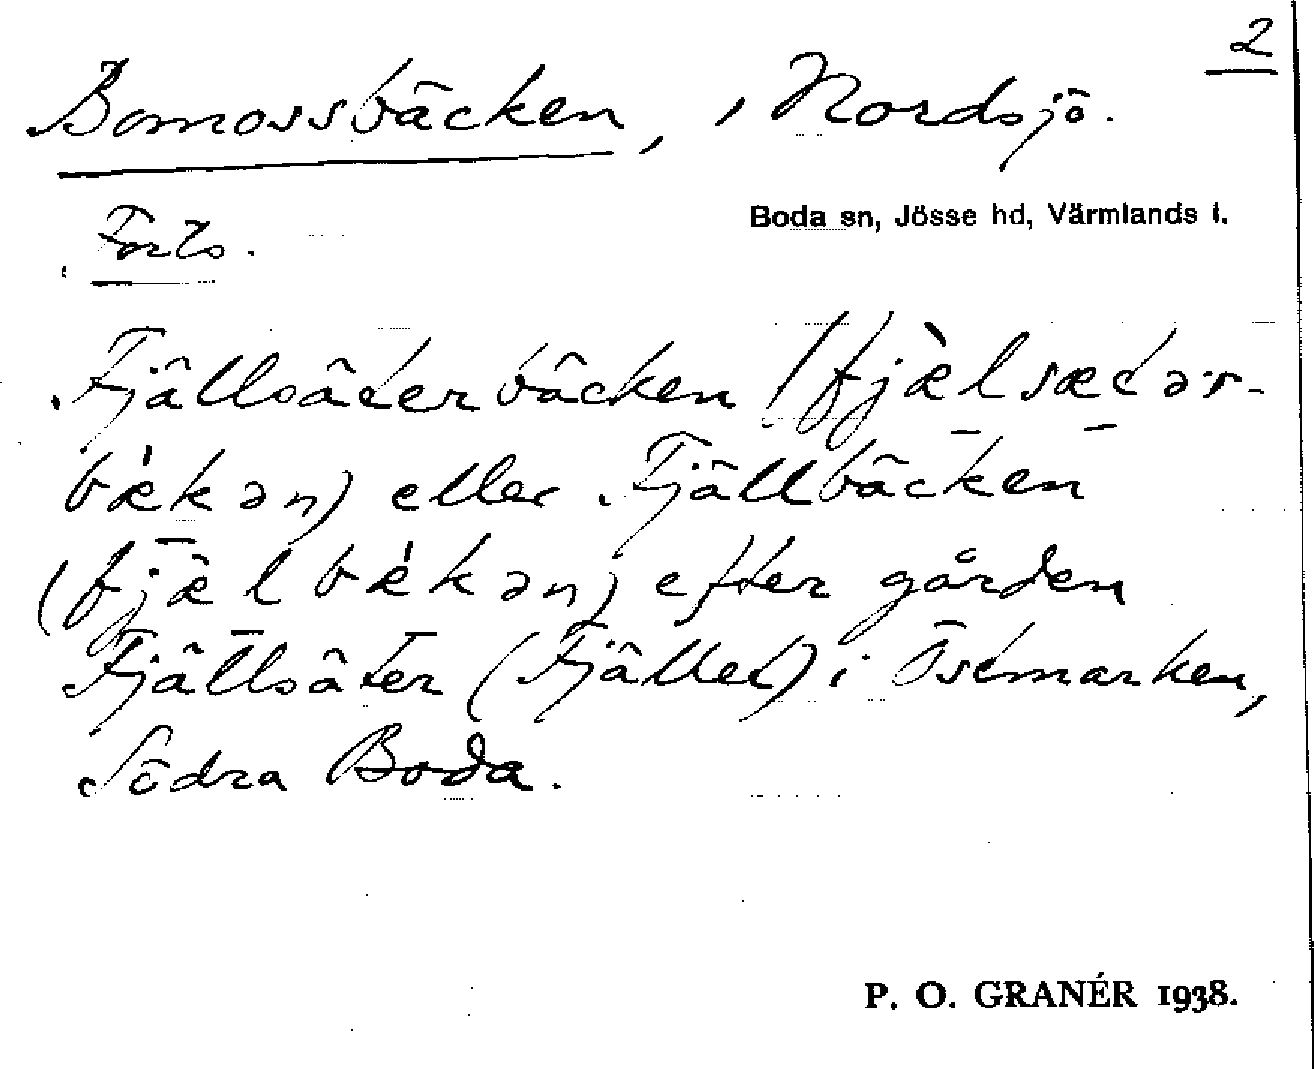 2
Bomossbäcken, i Nordsjö.
Boda sn, Jösse hd, Värmlands l.
Forts.
Fjällsäterbäcken (fjæ̀lsætər-
bæ̀kən) eller Fjällbäcken
(fjæ̀lbæ̀kən) efter gården
Fjällsäter (Fjället) i Östmarken,
Södra Boda.
P. O. GRANÉR 1938.